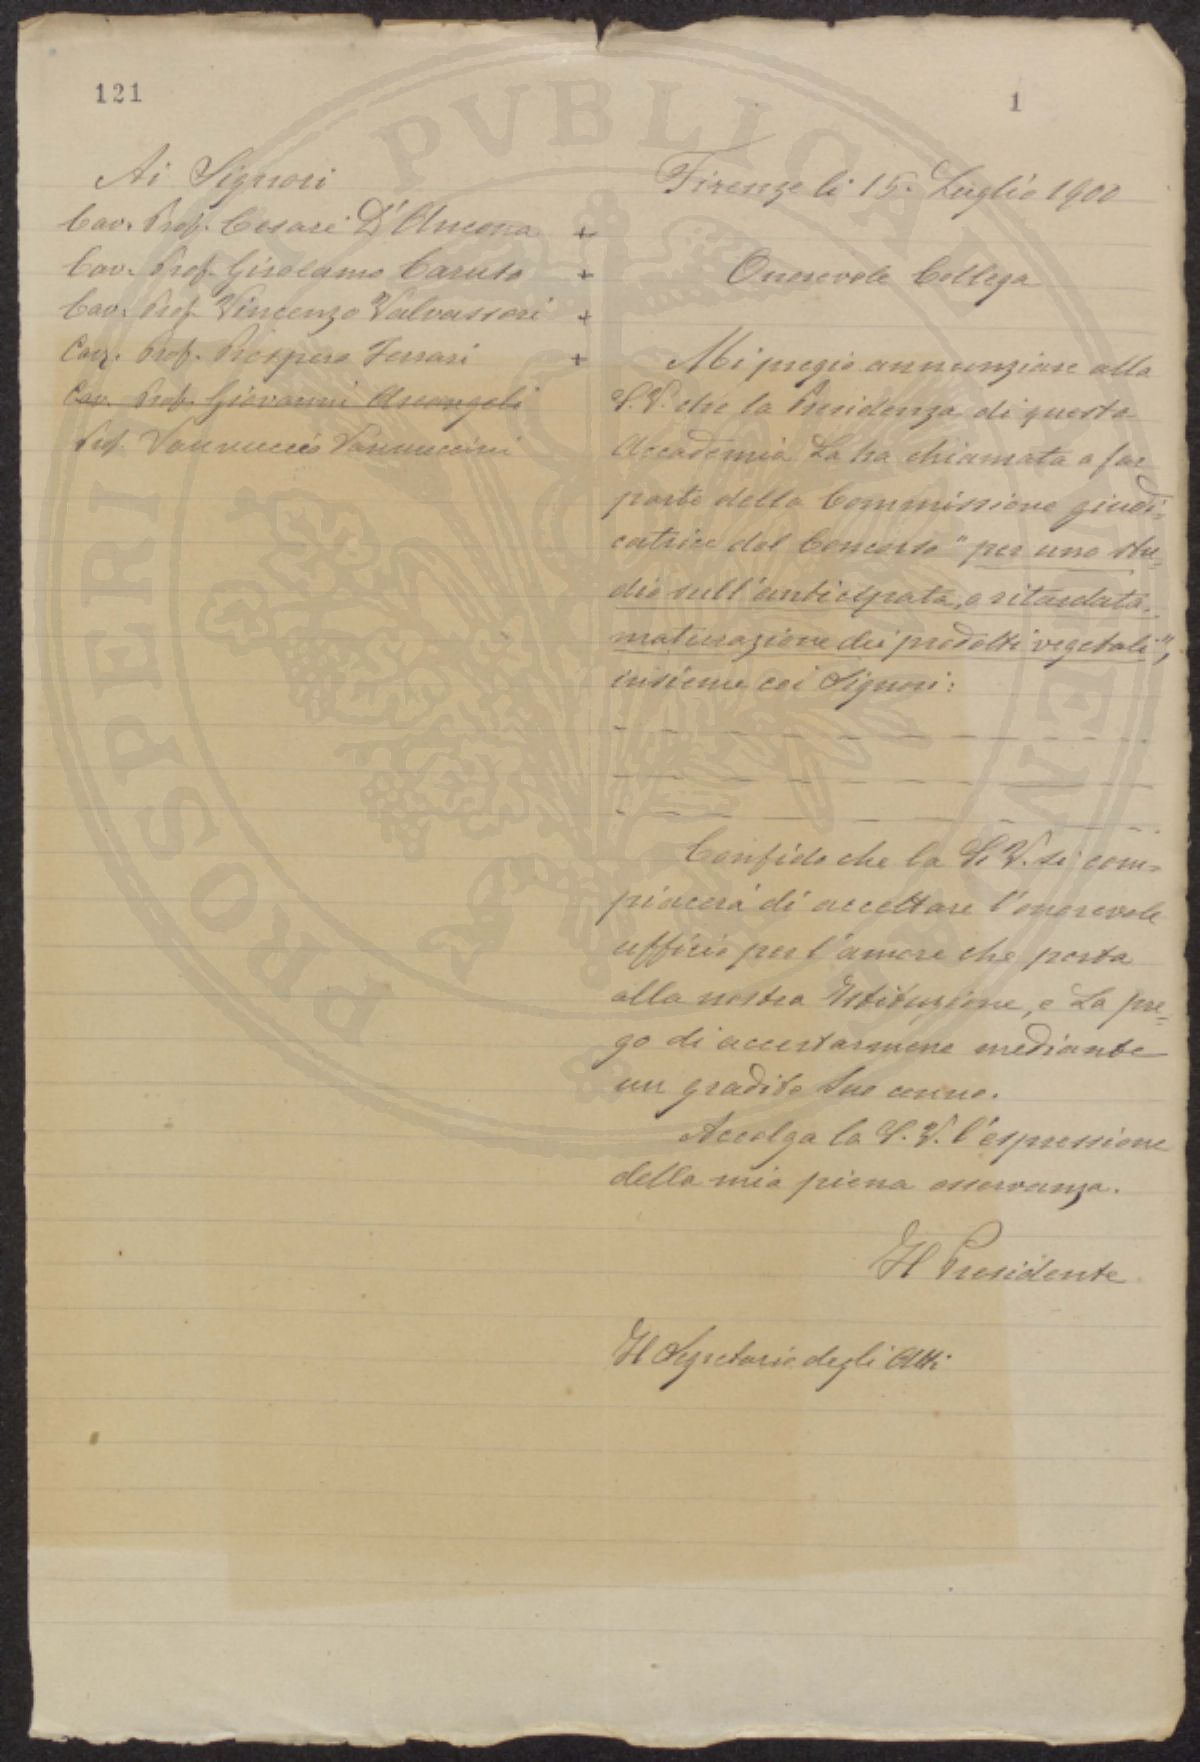 121
1
Ai Signori
Cav. Prof. Cesare D'Ancona +
Cav. Prof. Girolamo Caruso +
Cav. Prof. Vincenzo Valvassori +
Cav. Prof. Prospero Ferrari +
Cav. Prof. Giovanni Arcangeli
Prof. Vannuccio Vannuccini
Firenze li 15. Luglio 1900
Onorevole Collega
Mi pregio annunziare alla
S.V. che la Presidenza di questa
Accademia La ha chiamata a far
parte della Commissione giudi=
catrice del Concorso "per uno stu=
dio sull'anticipata, o ritardata
maturazione dei prodotti vegetali",
insieme coi Signori:
Confido che la S.V. si com=
piacerà di accettare l'onorevole
ufficio per l'amore che porta
alla nostra Istituzione, e La pre=
go di accertarmene mediante
un gradito Suo cenno.
Accolga la S.V. l'espressione
della mia piena osservanza.
Il Presidente
Il Segretario degli Atti
PROSPERITATI PVBLICAE